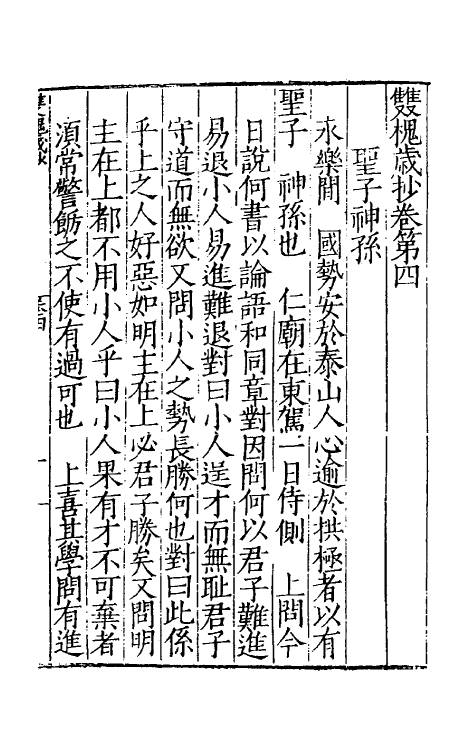 雙槐歲抄卷第四
聖子神孫
永樂間　國勢安於泰山人心逾於拱極者以有
聖子　神孫也　仁廟在東駕一日侍側　上問今
日說何書以論語和同章對因問何以君子難進
易退小人易進難退對曰小人逞才而無耻君子
守道而無欲又問小人之勢長勝何也對曰此係
乎上之人好惡如明主在上必君子勝矣又問明
主在上都不用小人乎曰小人果有才不可棄者
湏常警飭之不使有過可也　上喜其學問有進